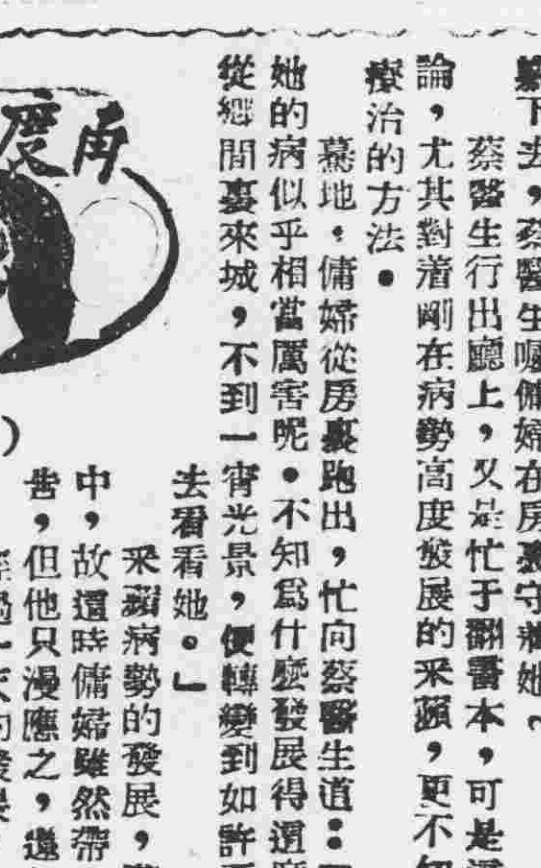 下去，蔡醫生囑傭婦在房裏守着她，
蔡醫生行出廳上，又是忙于翻書本，可是
論，尤其對着剛在病勢高度發展的采蘋，更不
療治的方法。
驀地，傭婦從房裏跑出，忙向蔡醫生道：
她的病似乎相當厲害呢。不知爲什麽發展得這
從鄉間裏來城，不到一宵光景，便轉變到如許
去看看她。」
采蘋病勢的發展，
中，故這時傭婦雖然帶
告，但他只漫應之，還
再度